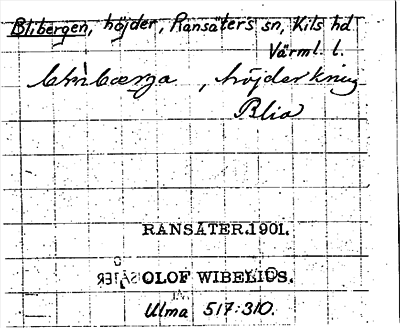 Blibergen, höjder, Ransäters sn, Kils hd
Värml. l.
höjder kring
Blia
RANSÄTER.1901.
OLOF WIBELIUS.
Ulma 517:310.